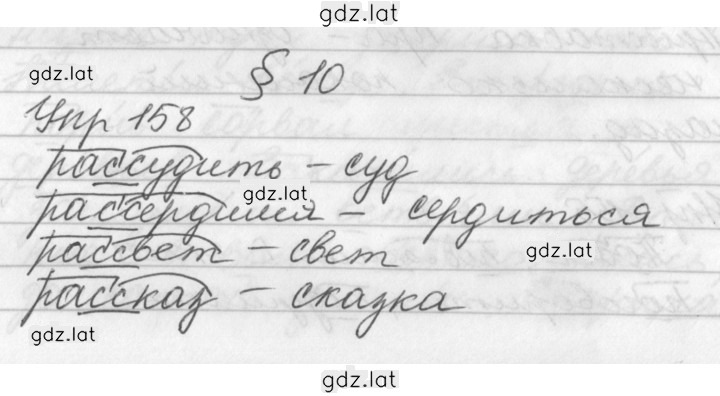 gdz.lat
gdz.lat
§ 10
Упр 158
рассудить – суд
gdz.lat
рассердился – сердиться
рассвет – свет
gdz.lat
рассказ – сказка
gdz.lat
gdz.lat